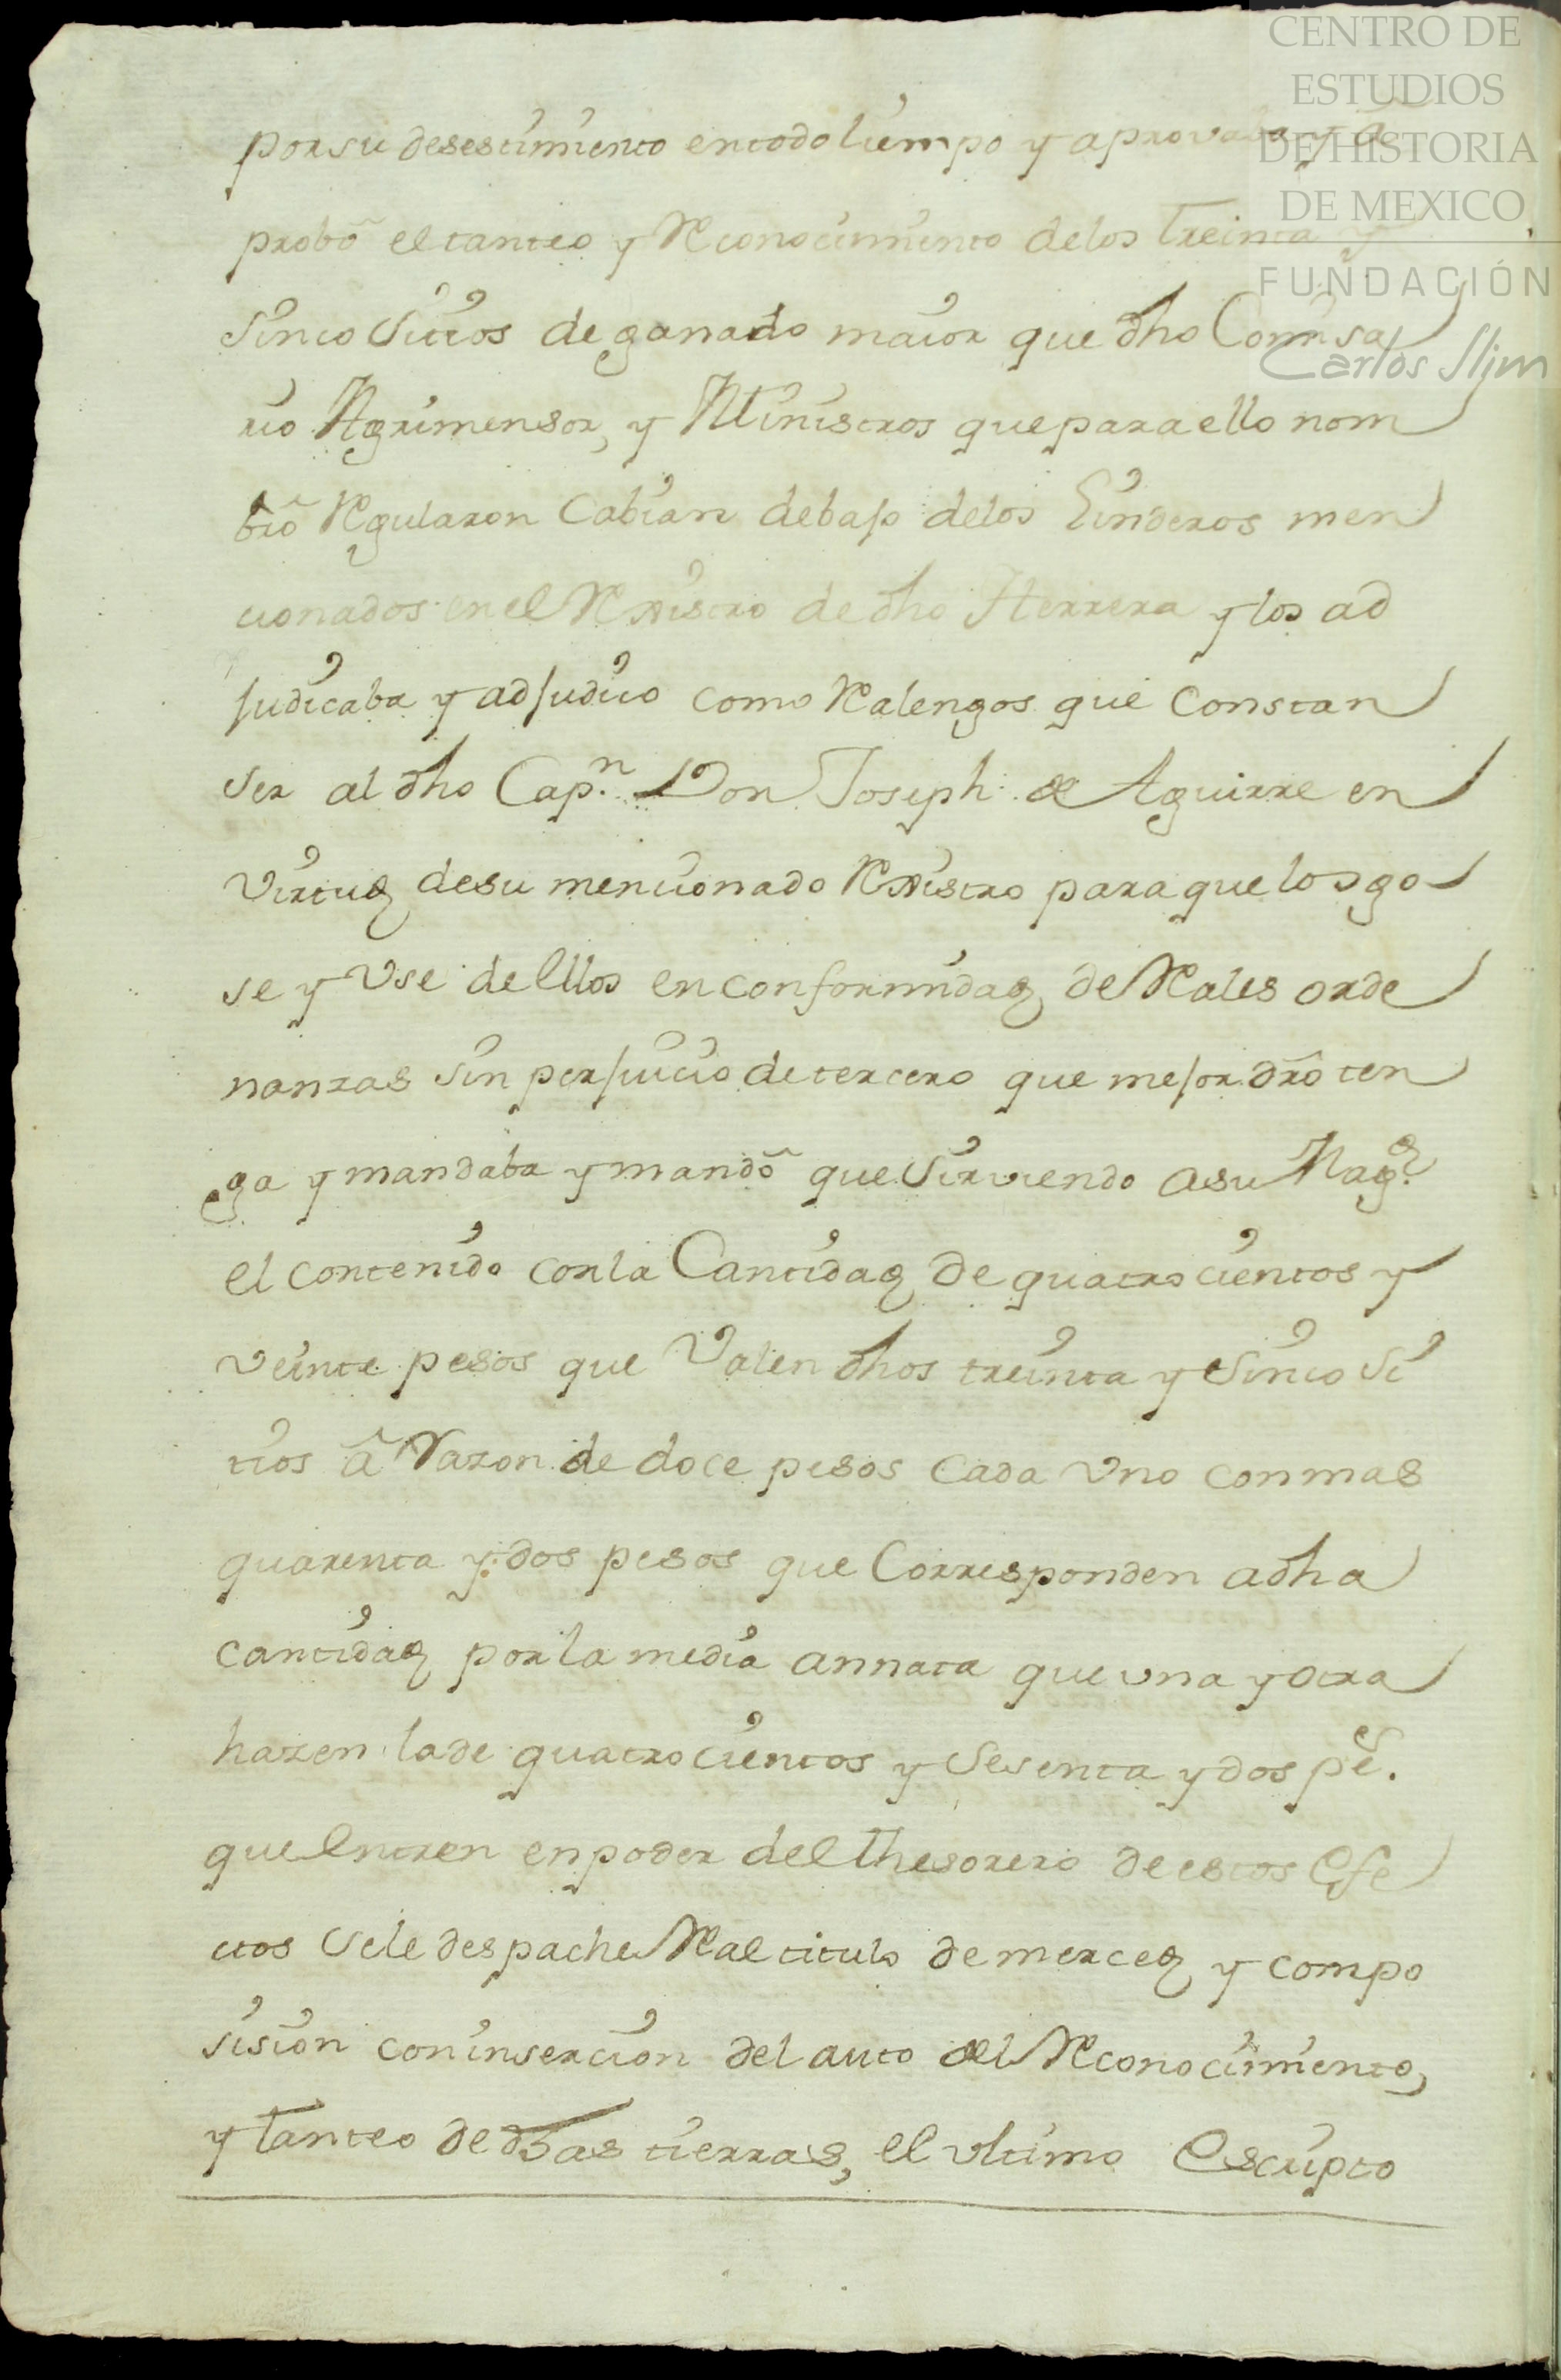 CENTRO DE
ESTUDIOS
DE HISTORIA
DE MEXICO
FUNDACIÓN
Carlos Slim
por su desestimiento en todo tiempo y aprovaba y a
probô el tanteo y Rconocimiento de los treinta y
sinco Sitios de ganado maior que dho Comisa
rio Agrimensor, y Ministros que para ello nom
brô Rgularon Cabian debajo de los Linderos men
cionados en el Rxistro de dho Herrera y los ad
judicaba y adjudico como Ralengos que Constan
ser al dho Cap.n Don Joseph de Aguirre en
Virtud de su mencionado Rxistro para que los go
se y Vse de Ellos en conformidad de Rales orde
nanzas sin perjuicio de tercero que mejor dro ten
ga y mandaba y mandô que Sirviendo a su Mag.d
el contenido con la Cantidad de quatrocientos y
veinte pesos que Valen dhos treinta y Sinco Si
tios â Razon de doce pesos Cada vno con mas
quarenta y dos pesos que Corresponden a dha
cantidad por la media annata que vna y otra
hazen la de quatrocientos y Sesenta y dos ps.
que Entren en poder del thesorero de estos Efe
ctos Se le despache Ral titulo de merced y compo
sision con insercion del auto del Rconocimiento,
y tanteo de dhas tierras, el vltimo Escripto